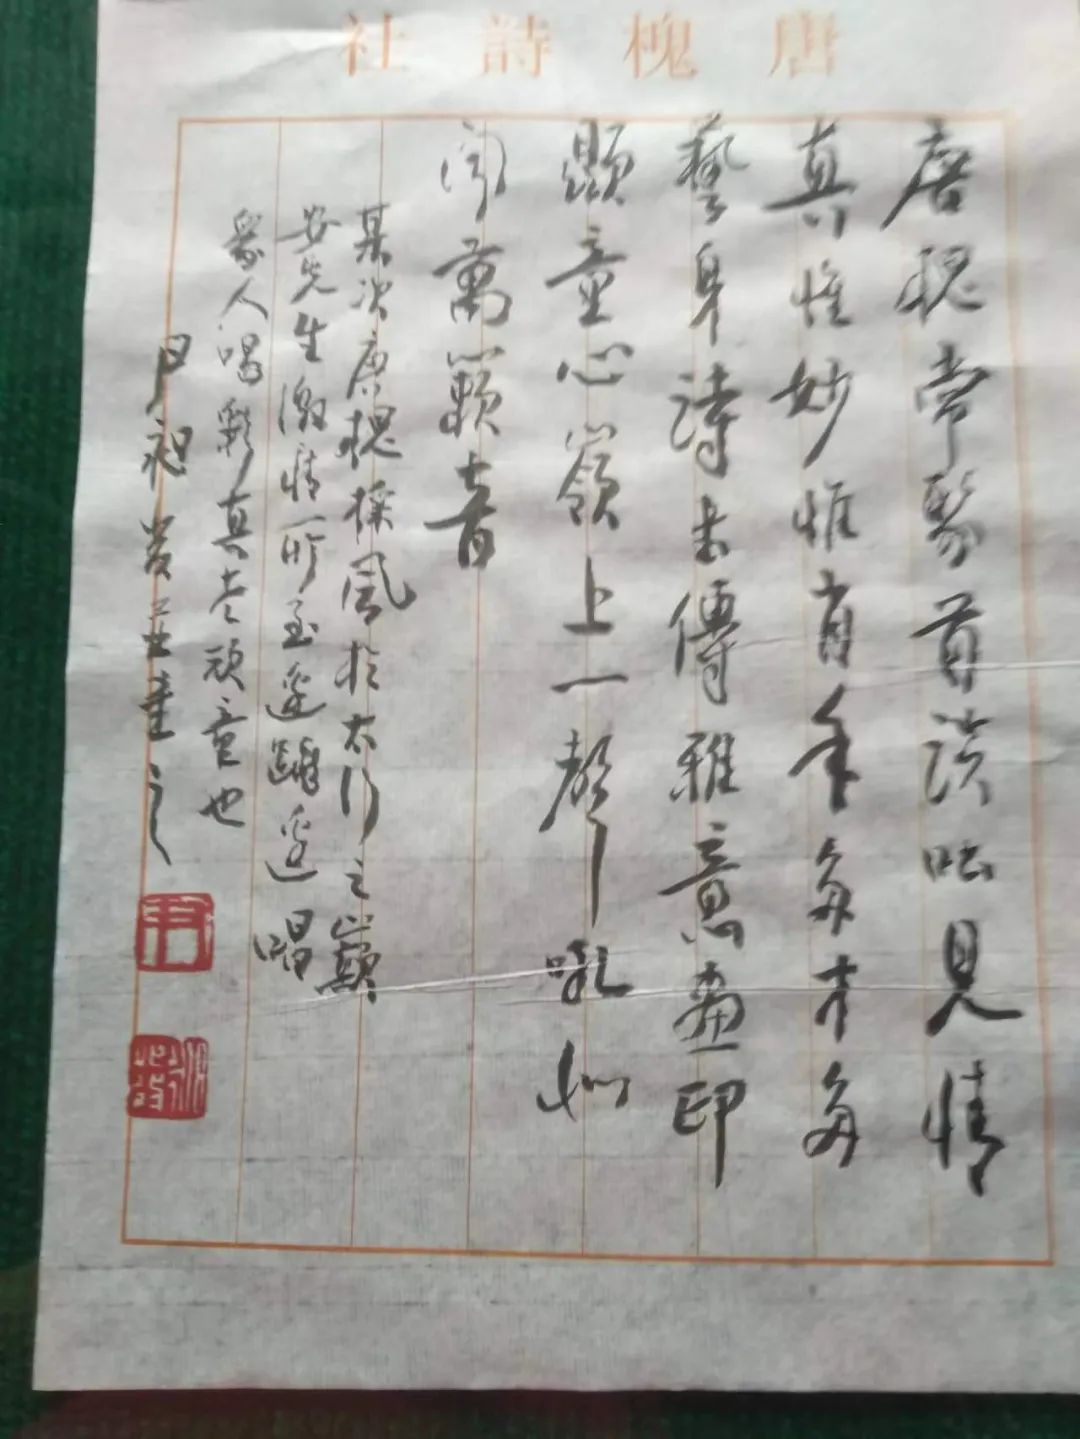 唐槐詩社
唐槐常聚首談吐見情
真惟妙惟肖年多才多
藝身詩書傳雅意畫印
顯童心嶺上一聲吼如
聞萬籟音
某次唐槐採風於太行之巔
安先生激情所至邊蹦邊唱
眾人喝彩真老頑童也
尹昶發並書之